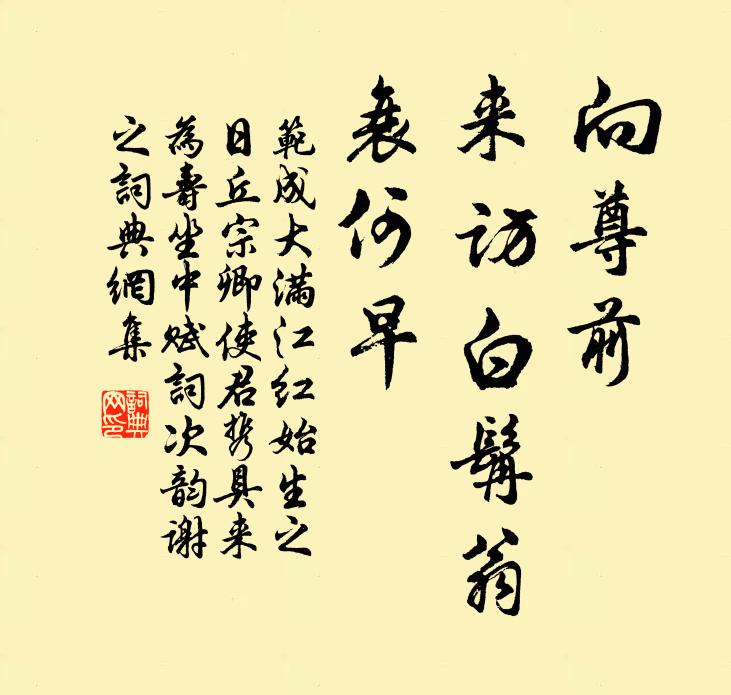 向尊前
来访白髯翁
衰何早
範成大满江红始生之
日丘宗卿使君携具来
為壽坐中赋詞次韵谢
之詞典網集
詞典
网印